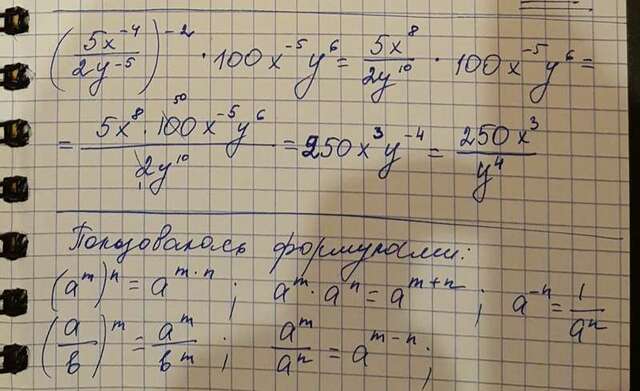 (5x⁻⁴/2y⁻⁵)⁻² · 100x⁻⁵y⁶ = 5x⁸/2y¹⁰ · 100x⁻⁵y⁶ =
= 5x⁸ · 100⁵⁰x⁻⁵y⁶/2y¹⁰ = 250x³y⁻⁴ = 250x³/y⁴
Пользовалась формулами:
(aᵐ)ⁿ = aᵐ·ⁿ ; aᵐ · aⁿ = aᵐ⁺ⁿ ; a⁻ⁿ = 1/aⁿ
(a/b)ᵐ = aᵐ/bᵐ ; aᵐ/aⁿ = aᵐ⁻ⁿ ;